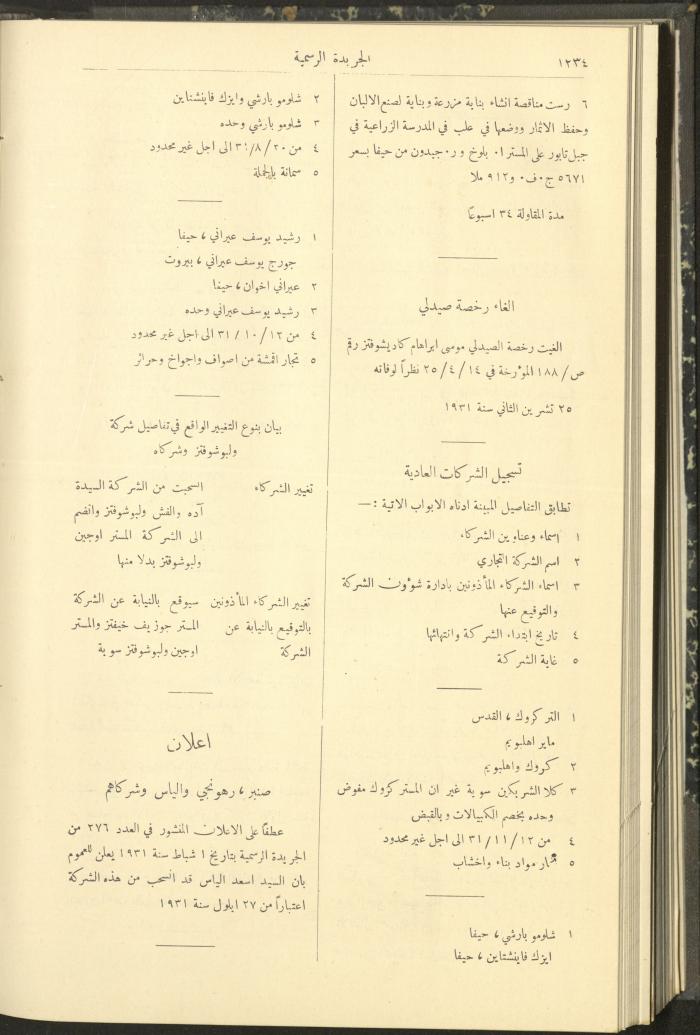 ١٢٣٤
الجريدة الرسمية
٦ رست مناقصة انشاء بناية مزرعة وبناية لصنع الالبان
وحفظ الاثمار ووضعها في علب في المدرسة الزراعية في
جبل تابور على المستر ا٠ بلوخ و ر٠ جيدون من حيفا بسعر
٥٦٧١ ج٠ف٠ و٩١٢ ملا
مدة المقاولة ٣٤ اسبوعاً
الغاء رخصة صيدلي
الغيت رخصة الصيدلي موسى ابراهام كاديشوفتز رقم
ص/١٨٨ المؤرخة في ١٤/٤/٢٥ نظراً لوفاته
٢٥ تشرين الثاني سنة ١٩٣١
تسجيل الشركات العادية
تطابق التفاصيل المبينة ادناه الابواب الاتية :—
١ اسماء وعناوين الشركاء
٢ اسم الشركة التجاري
٣ اسماء الشركاء المأذونين بادارة شؤون الشركة
والتوقيع عنها
٤ تاريخ ابتداء الشركة وانتهائها
٥ غاية الشركة
١ التر كروك ، القدس
ماير اهلبويم
٢ كروك واهلبويم
٣ كلا الشريكين سوية غير ان المستر كروك مفوض
وحده بخصم الكمبيالات وبالقبض
٤ من ١٢/١١/٣١ الى اجل غير محدود
٥ تجار مواد بناء واخشاب
١ شلومو بارشي ، حيفا
ايزك فاينشتاين ، حيفا
٢ شلومو بارشي وايزك فاينشتاين
٣ شلومو بارشي وحده
٤ من ٢٠/٨/٣١ الى اجل غير محدود
٥ سمانة بالجملة
١ رشيد يوسف عيراني ، حيفا
جورج يوسف عيراني ، بيروت
٢ عيراني اخوان ، حيفا
٣ رشيد يوسف عيراني وحده
٤ من ١٢/١٠/٣١ الى اجل غير محدود
٥ تجار اقمشة من اصواف واجواخ وحرائر
بيان بنوع التغيير الواقع في تفاصيل شركة
ولبوشوفتز وشركاه
تغيير الشركاء انسحبت من الشركة السيدة
آده والفش ولبوشوفتز وانضم
الى الشركة المستر اوجين
ولبوشوفتز بدلا منها
تغيير الشركاء المأذونين سيوقع بالنيابة عن الشركة
بالتوقيع بالنيابة عن المستر جوزيف خيفتز والمستر
الشركة اوجين ولبوشوفتز سوية
اعلان
صنبر ، رهونجي والياس وشركاهم
عطفاً على الاعلان المنشور في العدد ٢٧٦ من
الجريدة الرسمية بتاريخ ١ شباط سنة ١٩٣١ يعلن للعموم
بان السيد اسعد الياس قد انسحب من هذه الشركة
اعتباراً من ٢٧ ايلول سنة ١٩٣١